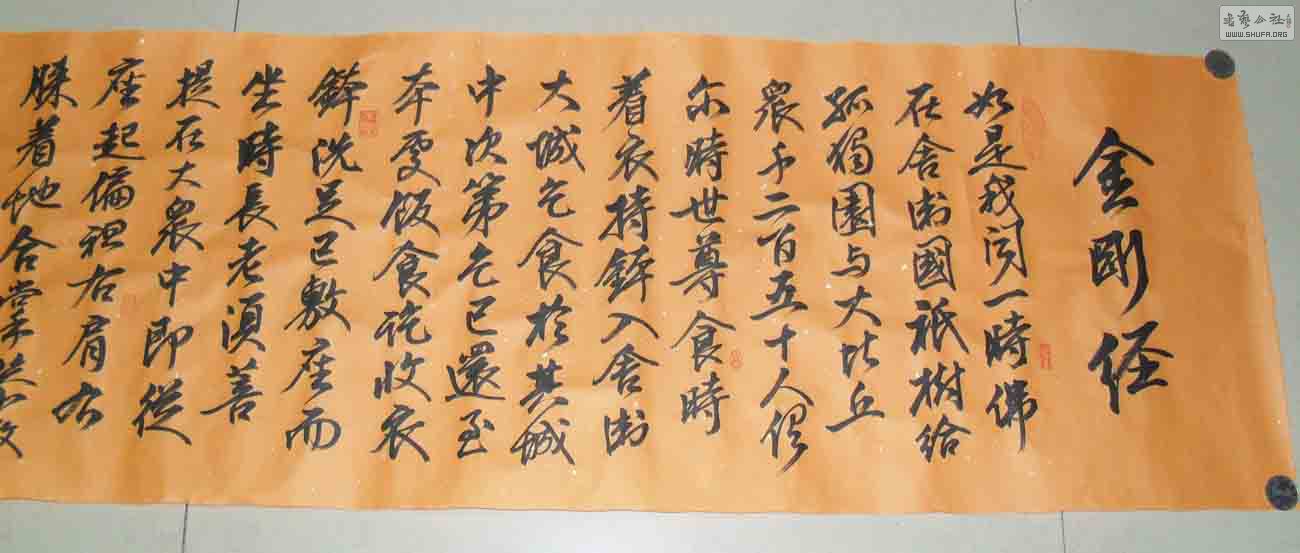 金剛经
如是我闻一時佛
在舍衛國祇樹给
孤獨園与大比丘
衆千二百五十人俱
尔時世尊食時
着衣持鉢入舍衛
大城乞食於其城
中次第乞已還至
本處饭食訖收衣
鉢洗足已敷座而
坐時長老須菩
提在大衆中即從
座起偏袒右肩右
膝着地合掌恭敬
書藝公社
WWW.SHUFA.ORG